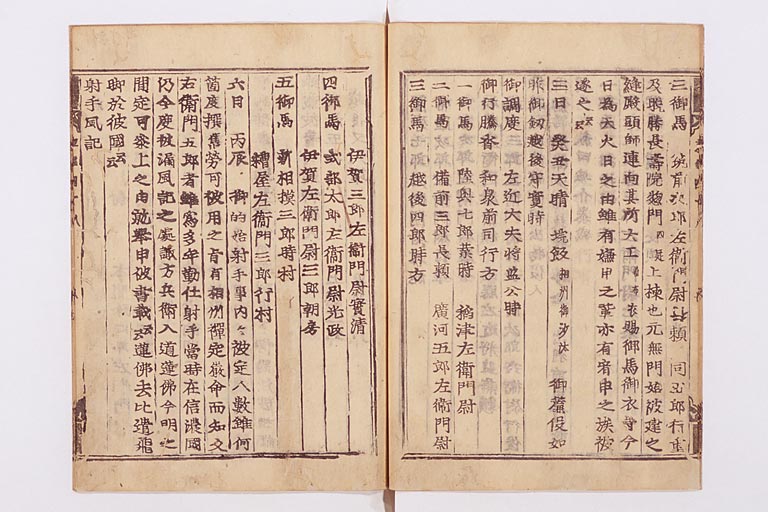 三御馬 筑前次郎左衛門尉行頼 同五郎行重
及晩勝長壽院惣門 上棟也元無門始被建之
縫殿頭師連向其所大工 賜御馬御衣等今
日為天火日之由雖有嫌申之輩亦有宥申之族被
遂之云云
三日 癸丑天晴 埦飯相州御沙汰 御簾役如
昨御釼越後守實時
御調度 左近大夫將監公時
御行騰沓 和泉前司行方
一御馬 陸奥七郎業時 攝津左衛門尉
二御馬 備前三郎長頼 廣河五郎左衛門尉
三御馬 越後四郎時方
伊賀三郎左衛門尉實清
四御馬 式部太郎左衛門尉光政
伊賀左衛門尉三郎朝房
五御馬 新相摸三郎時村
糟屋左衛門三郎行村
六日 丙辰 御的始射手擧内々被定人數雖何
箇度撰舊勞可被用之旨有相州禪定嚴命而知久
右衛門五郎者雖為多年勤仕射手當時在信濃國
仍今度被漏風記之處諏方兵衛入道蓮佛今明之
間定可參上之由就擧申被書載云云蓮佛去比遣飛
脚於彼國云云
射手風記